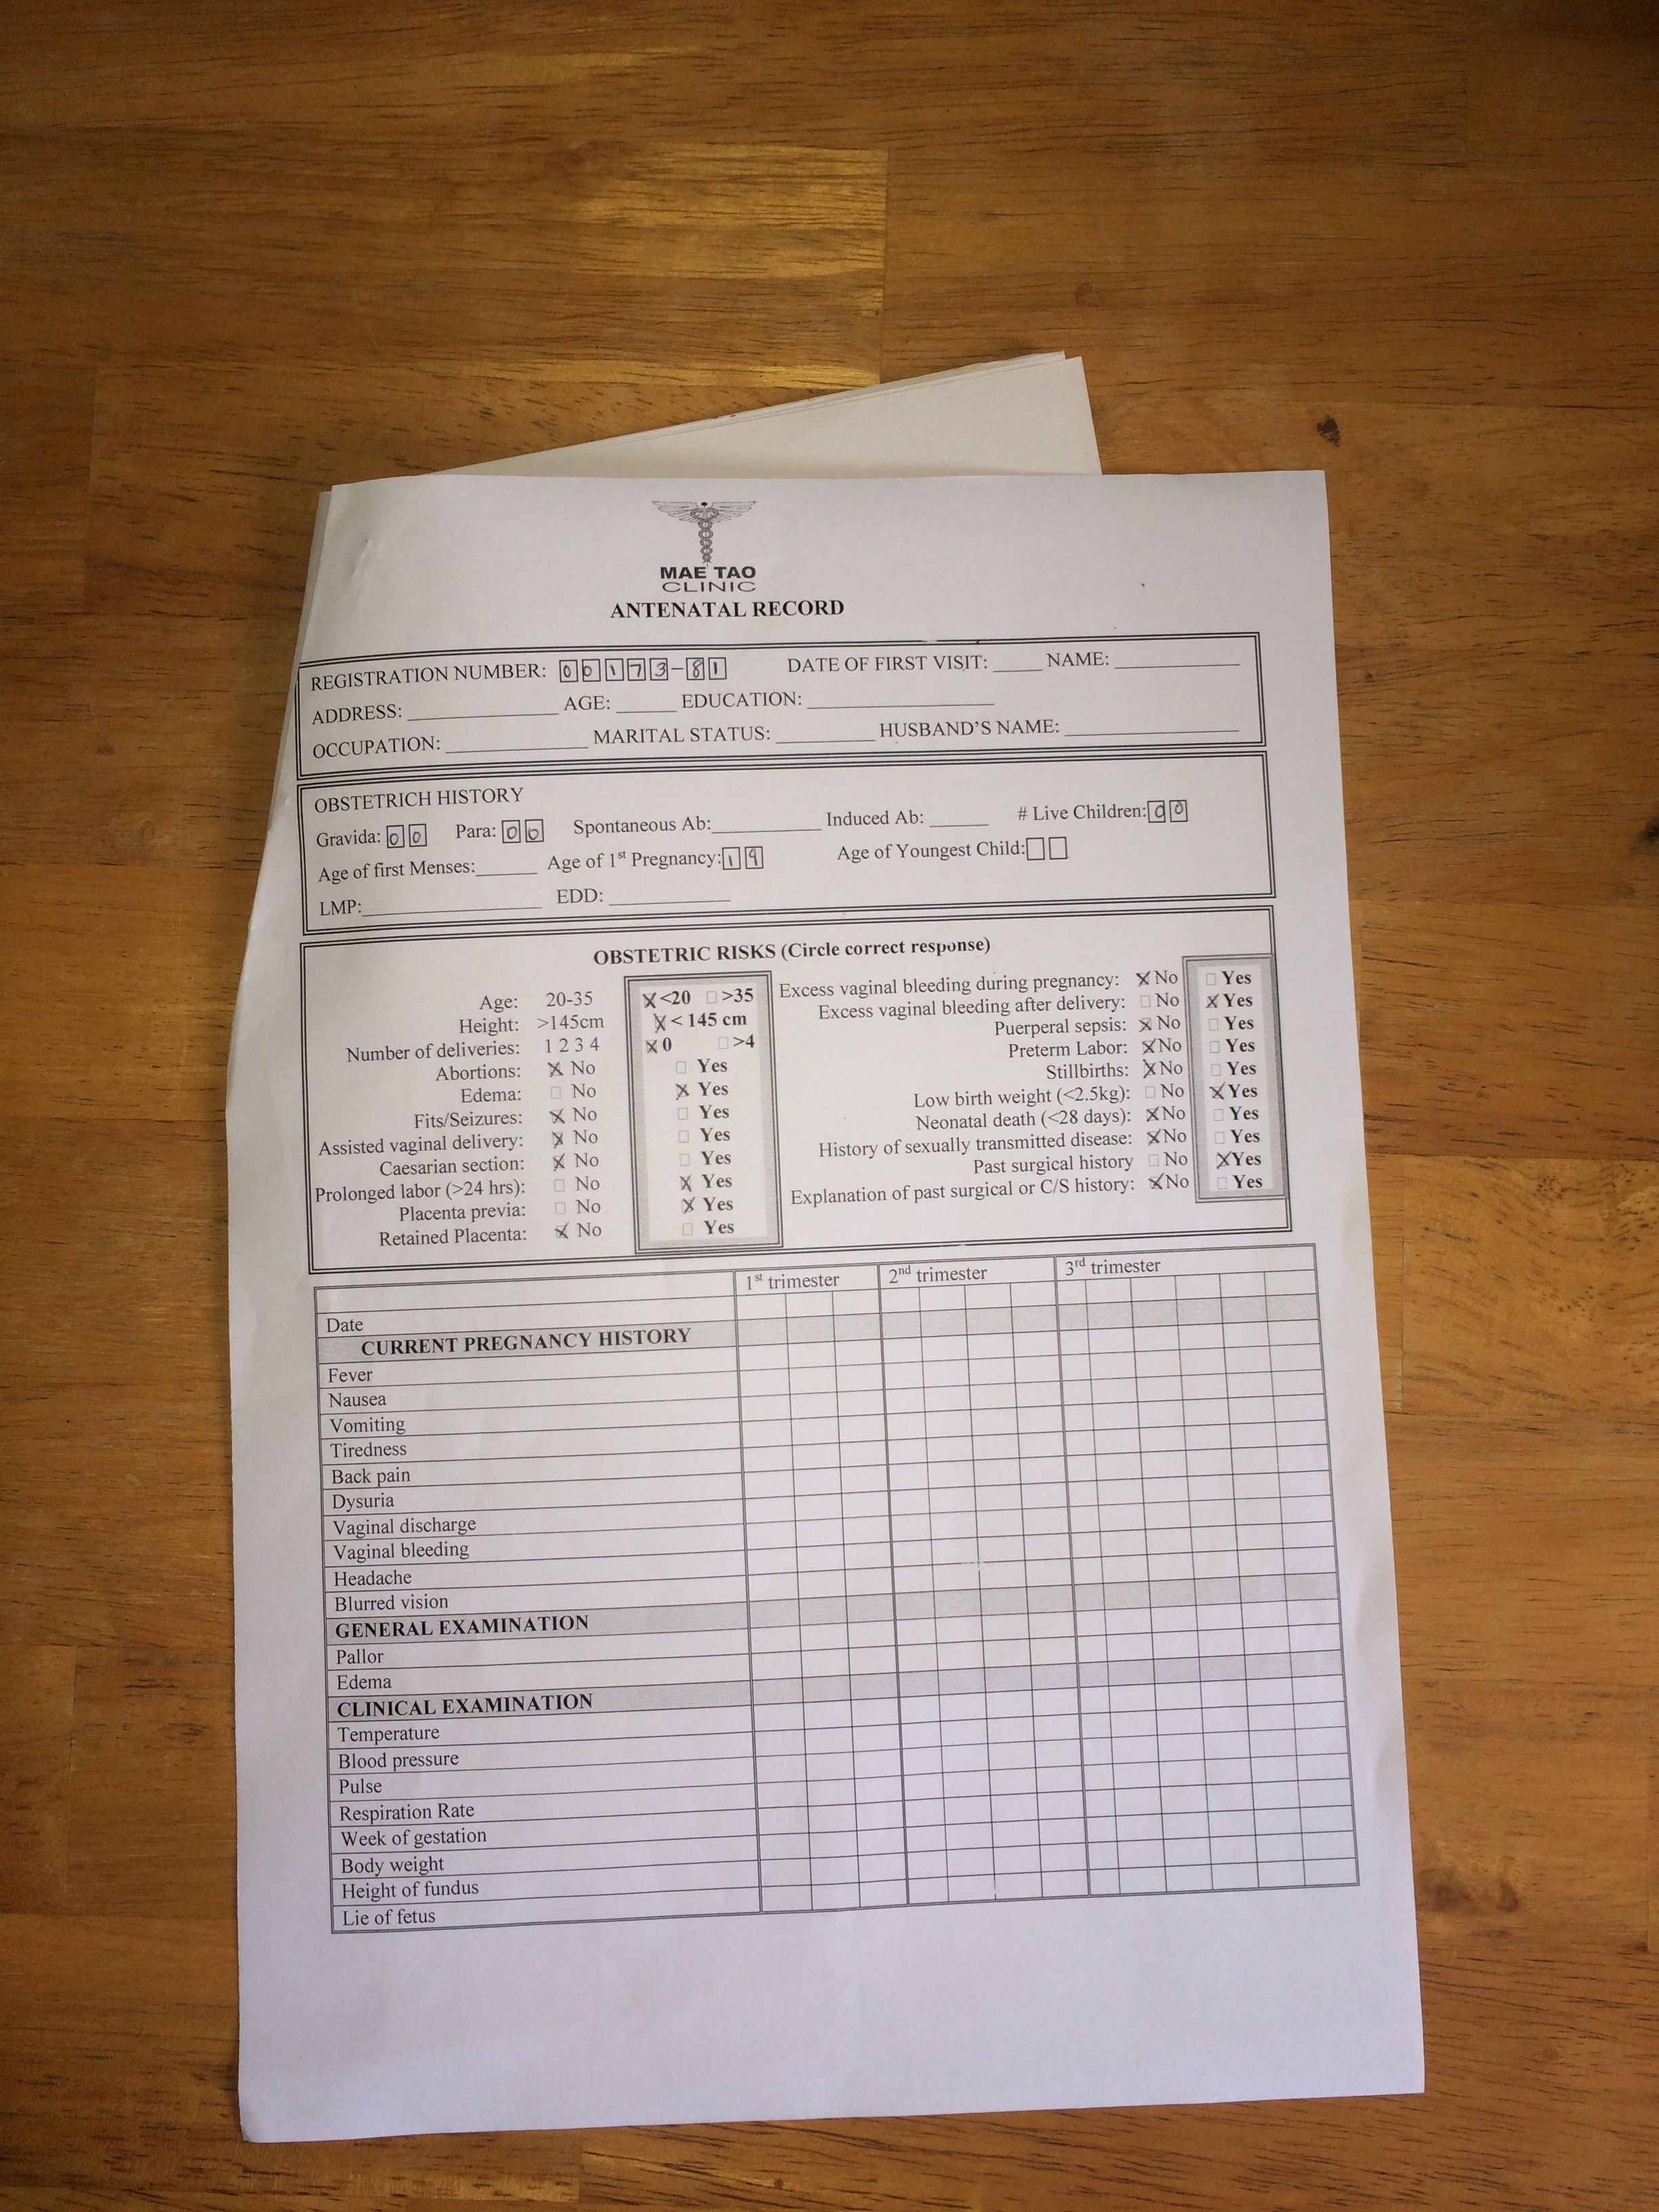 MAE TAO
CLINIC
ANTENATAL RECORD
REGISTRATION NUMBER: 00173-81 DATE OF FIRST VISIT: _____ NAME: _____
ADDRESS: _____ AGE: _____ EDUCATION: _____
OCCUPATION: _____ MARITAL STATUS: _____ HUSBAND'S NAME: _____
OBSTETRICH HISTORY
Gravida: 00 Para: 00 Spontaneous Ab: _____ Induced Ab: _____ # Live Children: 00
Age of first Menses: _____ Age of 1st Pregnancy: 19 Age of Youngest Child: ☐☐
LMP: _____ EDD: _____
OBSTETRIC RISKS (Circle correct response)
Age: 20-35 ☒ <20 ☐ >35
Height: >145cm ☒ < 145 cm
Number of deliveries: 1 2 3 4 ☒ 0 ☐ >4
Abortions: ☒ No ☐ Yes
Edema: ☐ No ☒ Yes
Fits/Seizures: ☒ No ☐ Yes
Assisted vaginal delivery: ☒ No ☐ Yes
Caesarian section: ☒ No ☐ Yes
Prolonged labor (>24 hrs): ☐ No ☒ Yes
Placenta previa: ☐ No ☒ Yes
Retained Placenta: ☒ No ☐ Yes
Excess vaginal bleeding during pregnancy: ☒ No ☐ Yes
Excess vaginal bleeding after delivery: ☐ No ☒ Yes
Puerperal sepsis: ☒ No ☐ Yes
Preterm Labor: ☒ No ☐ Yes
Stillbirths: ☒ No ☐ Yes
Low birth weight (<2.5kg): ☐ No ☒ Yes
Neonatal death (<28 days): ☒ No ☐ Yes
History of sexually transmitted disease: ☒ No ☐ Yes
Past surgical history ☐ No ☒ Yes
Explanation of past surgical or C/S history: ☒ No ☐ Yes
1st trimester 2nd trimester 3rd trimester
Date
CURRENT PREGNANCY HISTORY
Fever
Nausea
Vomiting
Tiredness
Back pain
Dysuria
Vaginal discharge
Vaginal bleeding
Headache
Blurred vision
GENERAL EXAMINATION
Pallor
Edema
CLINICAL EXAMINATION
Temperature
Blood pressure
Pulse
Respiration Rate
Week of gestation
Body weight
Height of fundus
Lie of fetus